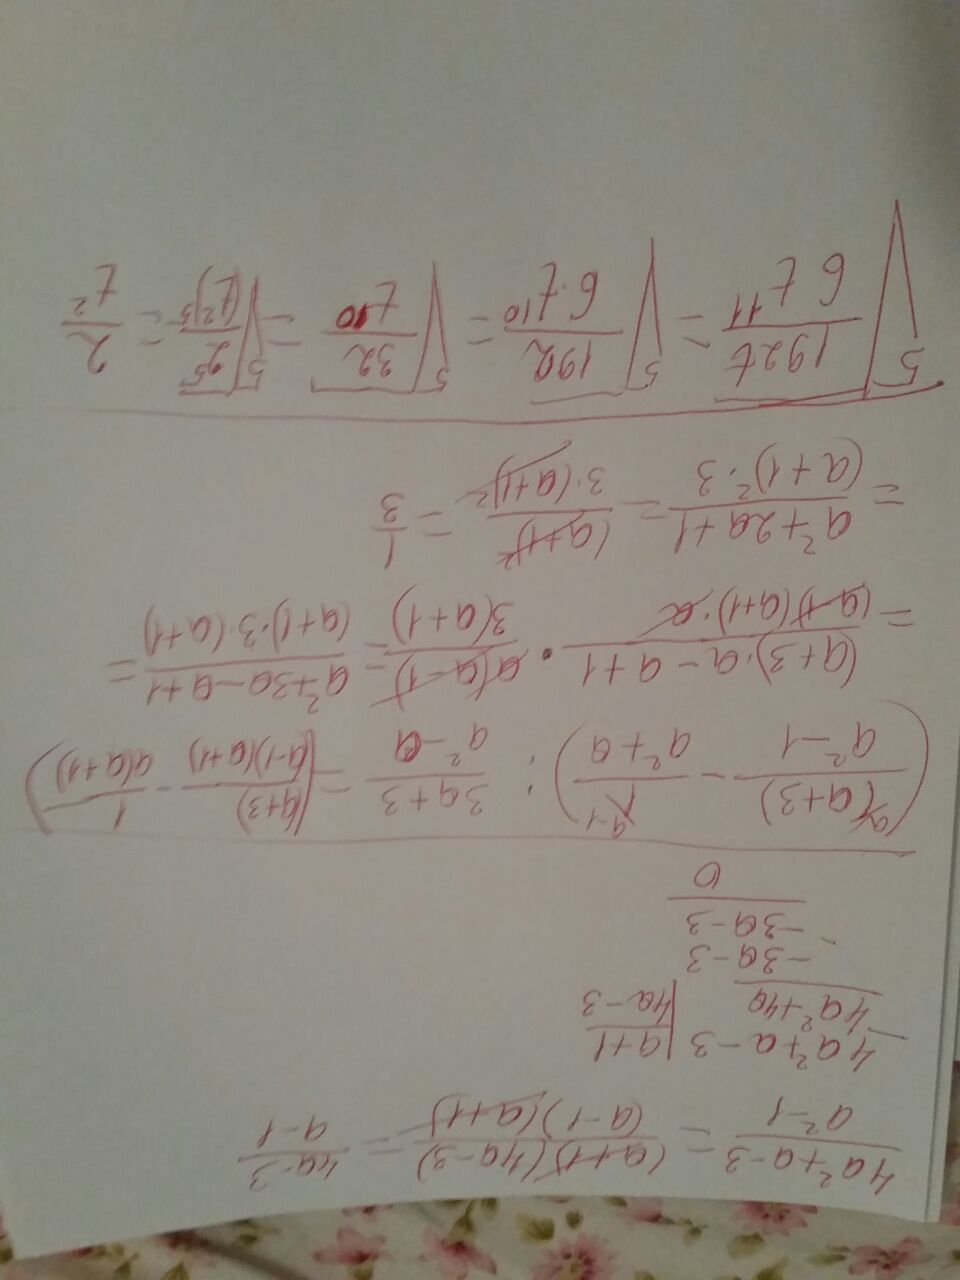 (4a²+a-3)/(a²-1) = (a+1)(4a-3)/(a-1)(a+1) = (4a-3)/(a-1)
4a²+a-3 | a+1
4a²+4a | 4a-3
-3a-3
-3a-3
0
((a+3)/(a²-1) - 1/(a²+a)) : (3a+3)/(a²-a) = ((a+3)/((a-1)(a+1)) - 1/(a(a+1)))
= ((a+3)·a-a+1)/((a-1)(a+1)·a) · a(a-1)/3(a+1) = (a²+3a-a+1)/((a+1)·3·(a+1)) =
= (a²+2a+1)/((a+1)²·3) = (a+1)²/(3·(a+1)²) = 1/3
⁵√(192t/6t¹¹) = ⁵√(192/6·t¹⁰) = ⁵√(32/t¹⁰) = ⁵√(2⁵/(t²)⁵) = 2/t²